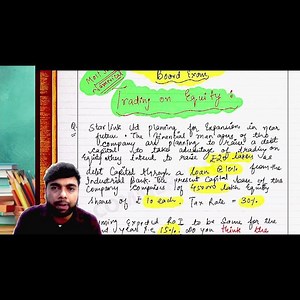 Most
Numerical
Board Exam
Trading on Equity :
Q. Starlink Ltd planning for Expansion in near
future. The financial managers of the
company are planning to raise a debt
capital to take advantage of trading on
Equity. they Intend to raise ₹20 lakhs
debt Capital through a loan @10% from the
Industrial Bank. The present Capital base of the
Company comprises of lakh Equity
Shares of ₹ 10 each. Tax Rate = 30%
Expected RoI to be Same for the
year i.e 15%. do you think the